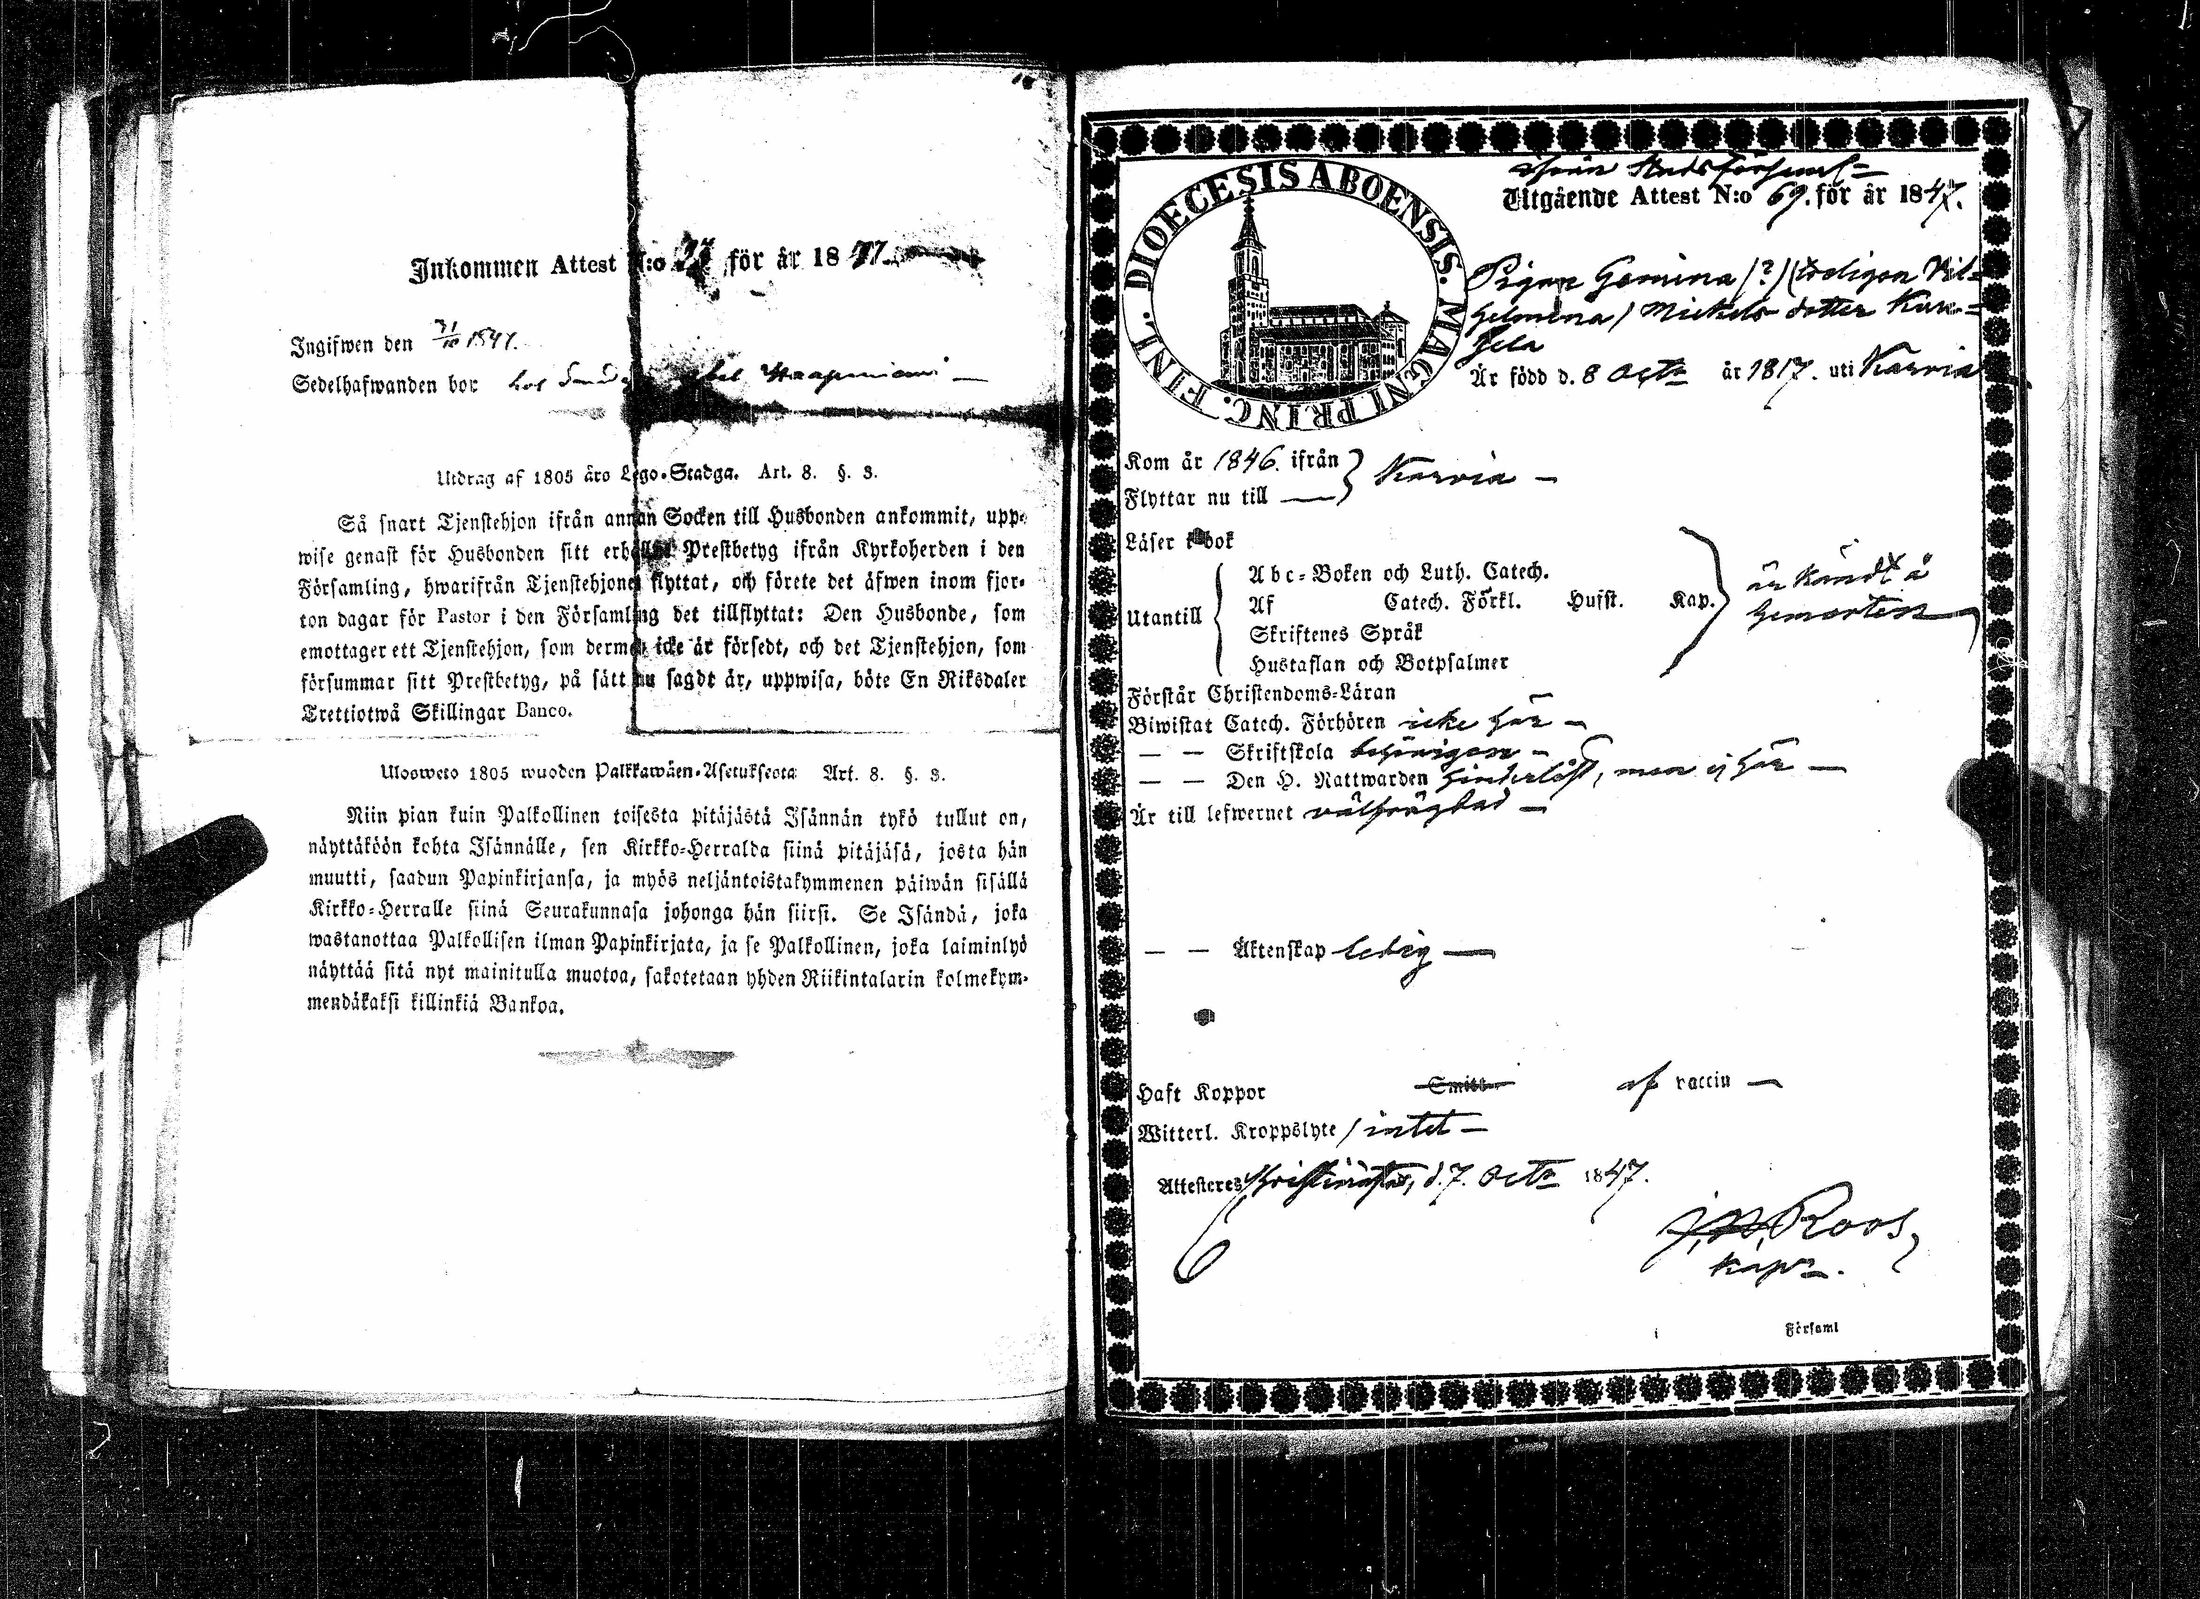 Inkommen Attest N:o 77 för år 1847.
Ingifwen den 31/10 1847.
Sedelhafwanden bor hos
Utdrag af 1805 års Lego-Stadga. Art. 8. §. 3.
Så snart Tjenstehjon ifrån annan Socken till Husbonden ankommit, upp-
wise genast för Husbonden sitt erhållne Prestbetyg ifrån Kyrkoherden i den
Församling, hwarifrån Tjenstehjonet flyttat, och förete det äfwen inom fjor-
ton dagar för Pastor i den Församling det tillflyttat: Den Husbonde, som
emottager ett Tjenstehjon, som dermed icke är försedt, och det Tjenstehjon, som
försummar sitt Prestbetyg, på sätt nu sagdt är, uppwisa, böte En Riksdaler
Trettiotwå Skillingar Banco.
Ulosweto 1805 wuoden Palkkawäen-Asetuksesta Art. 8. §. 3.
Niin pian kuin Palkollinen toisesta pitäjästä Isännän tykö tullut on,
näyttäköön kohta Isännälle, sen Kirkko-Herralda siinä pitäjäsä, josta hän
muutti, saadun Papinkirjansa, ja myös neljäntoistakymmenen päiwän sisällä
Kirkko-Herralle siinä Seurakunnasa johonga hän siirsi. Se Isändä, joka
wastanottaa Palkollisen ilman Papinkirjata, ja se Palkollinen, joka laiminlyö
näyttää sitä nyt mainitulla muotoa, sakotetaan yhden Riikintalarin kolmekym-
mendäkaksi killinkiä Bankoa.
DIOECESIS ABOENSIS. MAGNI PRINC. FINL.
ifrån Stadsförsaml=
Utgående Attest N:o 69. för år 1847.
Pigan Gemina (?) (troligen Vil-
helmina) Mickels dotter Kan-
Är född d. 8 Octr år 1817. uti Karvia
Kom år 1846. ifrån
Flyttar nu till — } Karvia —
Läser i bok
Utantill
Abc-Boken och Luth. Catech.
Af Catech. Förkl. Hufst. Kap.
Skriftenes Språk
Hustaflan och Botpsalmer
är kändt å
hemorten
Förstår Christendoms-Läran
Biwistat Catech. Förhören icke här —
— — Skriftskola behörigen —
— — Den H. Nattwarden hinderlöst, men ej här —
Är till lefwernet välfrägdad —
— — Äktenskap ledig —
Haft Koppor Smitt af vaccin —
Witterl. Kroppslyte intet —
Attesteres Christinestad, d. 7. Octr 1847.
J. W. Roos,
Kapn.
Församl